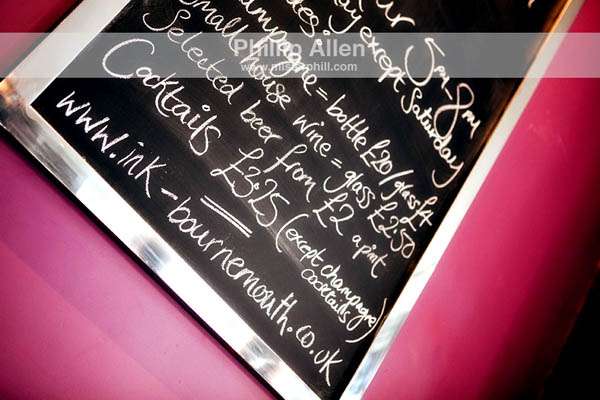 5pm-8pm
day except Saturday
Champagne = bottle £20/glass £4
Small house wine = glass £2.50
Selected beer from £2 a pint
Cocktails £3.25 (except champagne cocktails)
www.ink-bournemouth.co.uk
Philip Allen
www.misterphill.com